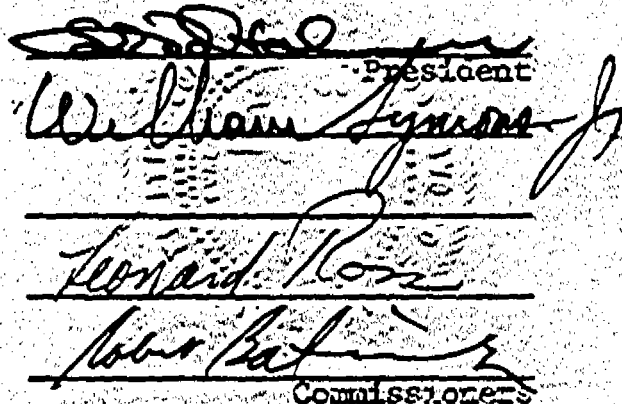 President
William Symons Jr
Leonard Ross
Robert Batinovich
Commissioners